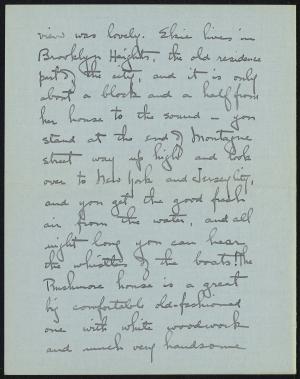 view was lovely. Elsie lives in
Brooklyn Heights, the old residence
part of the city, and it is only
about a block and a half from
her house to the sound - you
stand at the end of Montague
street way up high and look
over to New York and Jersey City,
and you get the good fresh
air from the water, and all
night long you can hear
the whistles of the boats! The
Rushmore house is a great
big comfortable old-fashioned
one with white woodwork
and much very handsome